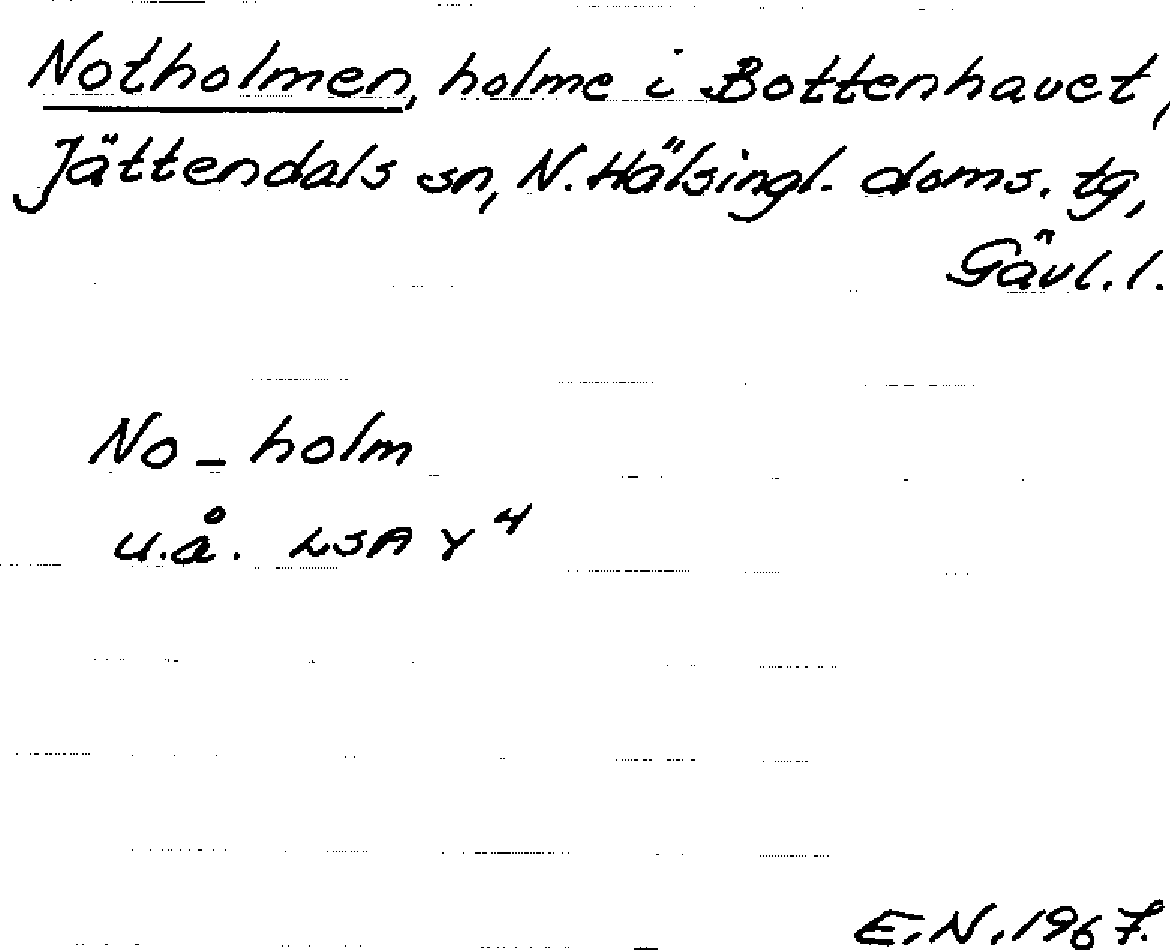 Notholmen, holme i Bottenhavet,
Jättendals sn, N. Hälsingl. doms. tg,
Gävl. l.
No - holm
u.å. LSA Y 4
E.N. 1967.